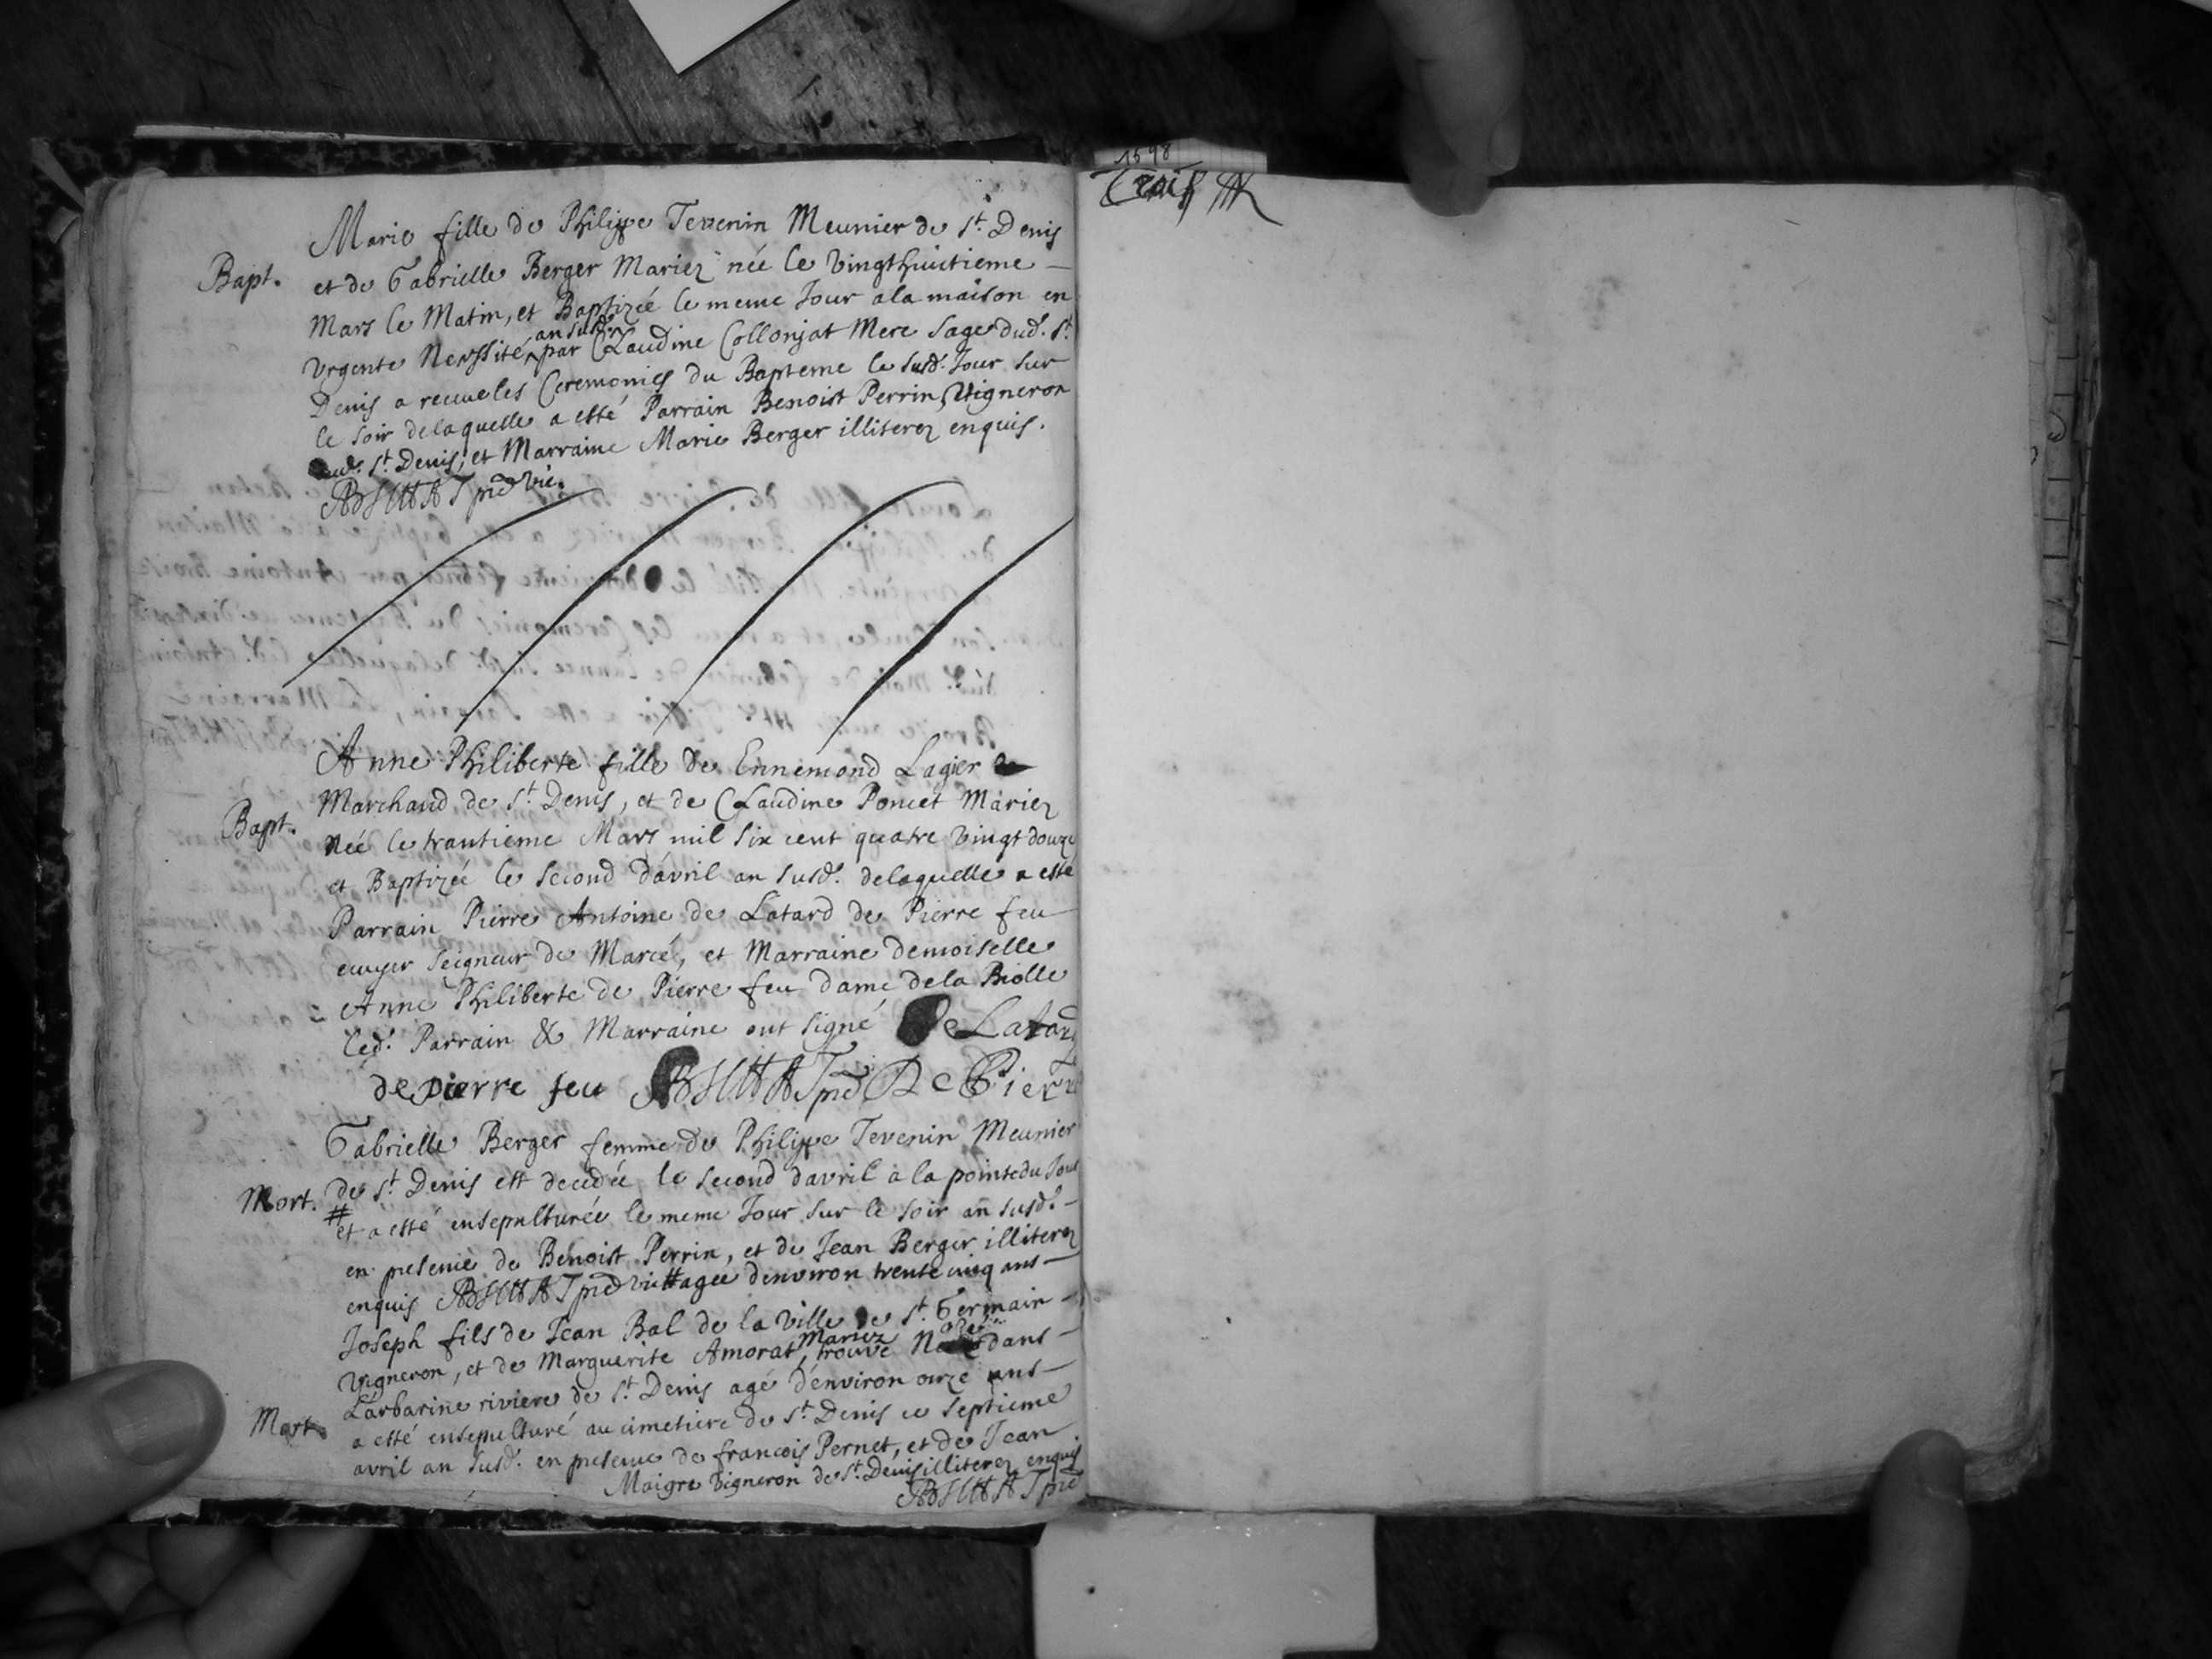 Marie fille de Philippe Tevenin Meunier de St. Denis
Bapt. et de Gabrielle Berger Mariez née le vingthuitieme
Mars le Matin, et Baptizée le meme Jour a la maison en
an susd.
Urgente Nenssité par Claudine Collonjat Mere sage dud. St.
Denis a receue les Ceremonies du Bapteme le susd. Jour sur
le soir delaquelle a esté Parrain Benoist Perrin Vigneron
dud. St. Denis, et Marraine Marie Berger illiterez enquis.
Anne Philiberte fille de Ennemond Lagier
Marchand de St. Denis, et de Claudine Poncet Mariez
Bapt. née le trantieme Mars mil six cent quatre vingt douze
et Baptizée le second d'avril an susd. delaquelle a esté
Parrain Pierre Antoine de Latard de Pierre feu
euyer seigneur de Marcé, et Marraine demoiselle
Anne Philiberte de Pierre feu dame de la Biolle
Led. Parrain & Marraine ont signé De Latard
de pierre feu De Pierre
Gabrielle Berger femme de Philippe Tevenin Meunier
Mort. de St. Denis est decedée le second davril a la pointe du Jour
# et a esté ensepulturée le meme Jour sur le soir an susd.
en presence de Benoist Perrin, et de Jean Berger illiterez
enquis # agée denviron trente cinq ans
Joseph fils de Jean Bal de la ville de St. Germain
mariez
Vigneron, et de Marguerite Amorat, trouvé dans
L'arbarine riviere de St. Denis agé d'environ onze ans
Mort. a esté ensepulturé au cimetiere de St. Denis ce septieme
avril an susd. en presence de francois Pernet, et de Jean
Maigre vigneron de St. Denis illiterez enquis
1598